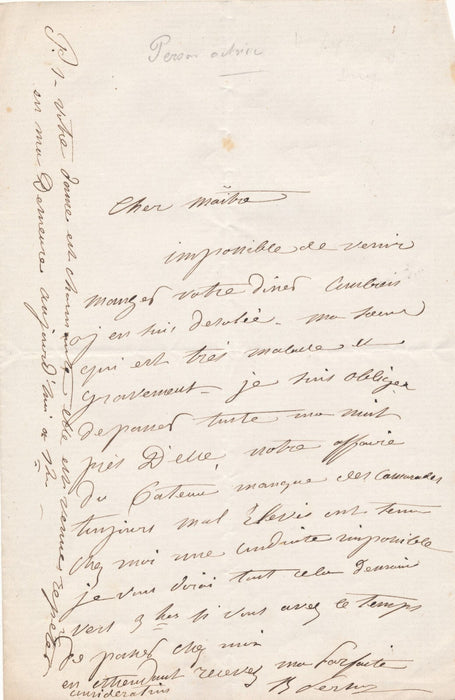 Person actrice
Cher maître
impossible de venir
manger votre diner
j'en suis desolée - ma soeur
qui est très malade et
gravement - je suis obliger
de passer toute ma nuit
près D'elle, notre affaire
du Gateau manque des camarades
toujours mal Elevés ont tenu
chez moi une conduite impossible
je vous dirai tout cela Demain
vers 9 hrs si vous avez le temps
de passer chez moi
en attendant recevez ma parfaite
consideration
B Person
P. S - votre dame est charmante elle est venue repeter
en ma Demeure aujourd'hui a